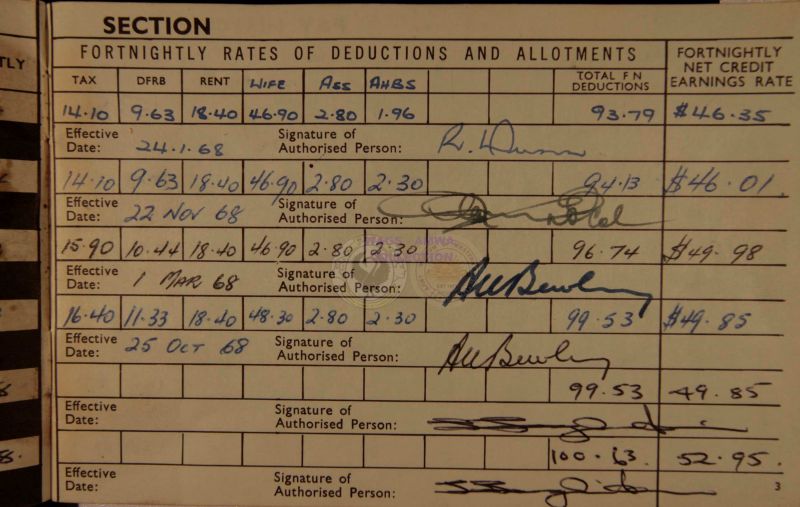 SECTION
FORTNIGHTLY RATES OF DEDUCTIONS AND ALLOTMENTS
FORTNIGHTLY NET CREDIT EARNINGS RATE
TLY
TAX DFRB RENT WIFE ASS AHBS TOTAL F N DEDUCTIONS
14.10 9.63 18.40 46.90 2.80 1.96 93.79 $46.35
Effective Date: 24.1.68 Signature of Authorised Person:
14.10 9.63 18.40 46.90 2.80 2.30 94.13 $46.01
Effective Date: 22 NOV 68 Signature of Authorised Person:
15.90 10.44 18.40 46.90 2.80 2.30 96.74 $49.98
Effective Date: 1 MAR 68 Signature of Authorised Person: AWBewley
16.40 11.33 18.40 48.30 2.80 2.30 99.53 $49.85
Effective Date: 25 OCT 68 Signature of Authorised Person: AWBewley
99.53 49.85
Effective Date: Signature of Authorised Person:
100.63. 52.95.
Effective Date: Signature of Authorised Person:
3